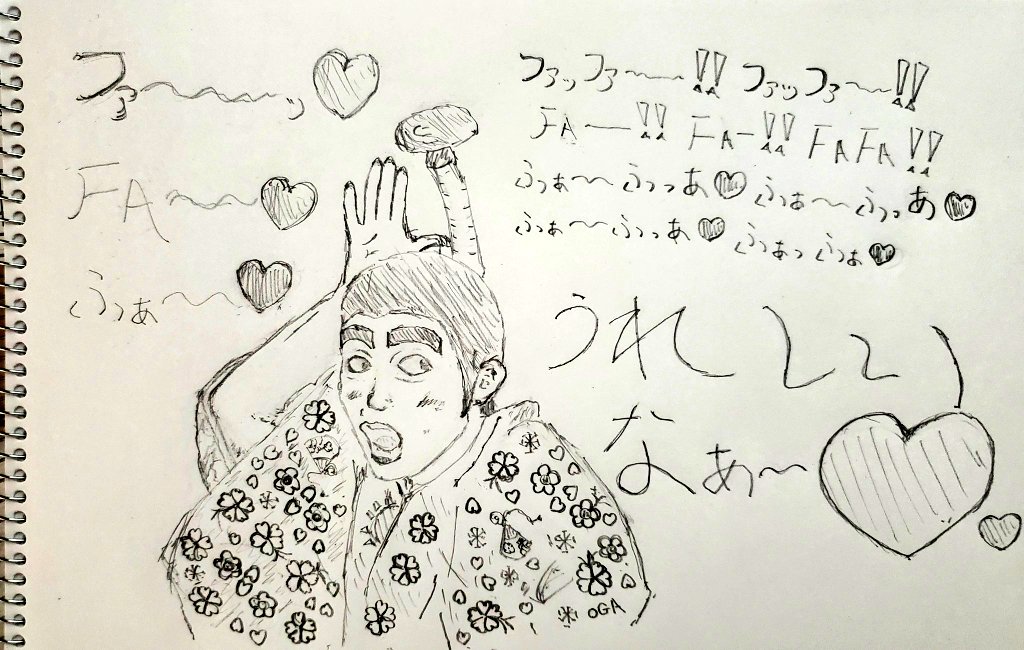 ファ〜〜〜ッ♥
FA〜〜♥
ふっぁ〜〜♥
ファッファ〜〜!! ファッファ〜〜!!
FA―!! FA―!! FAFA!!
ふっぁ〜〜ふっっあ♥ ふっぁ〜〜ふっっあ♥
ふっぁ〜〜ふっっぁ♥ ふっぁっふぁ♥
うれしぃ〜
なぁ〜♥
OGA